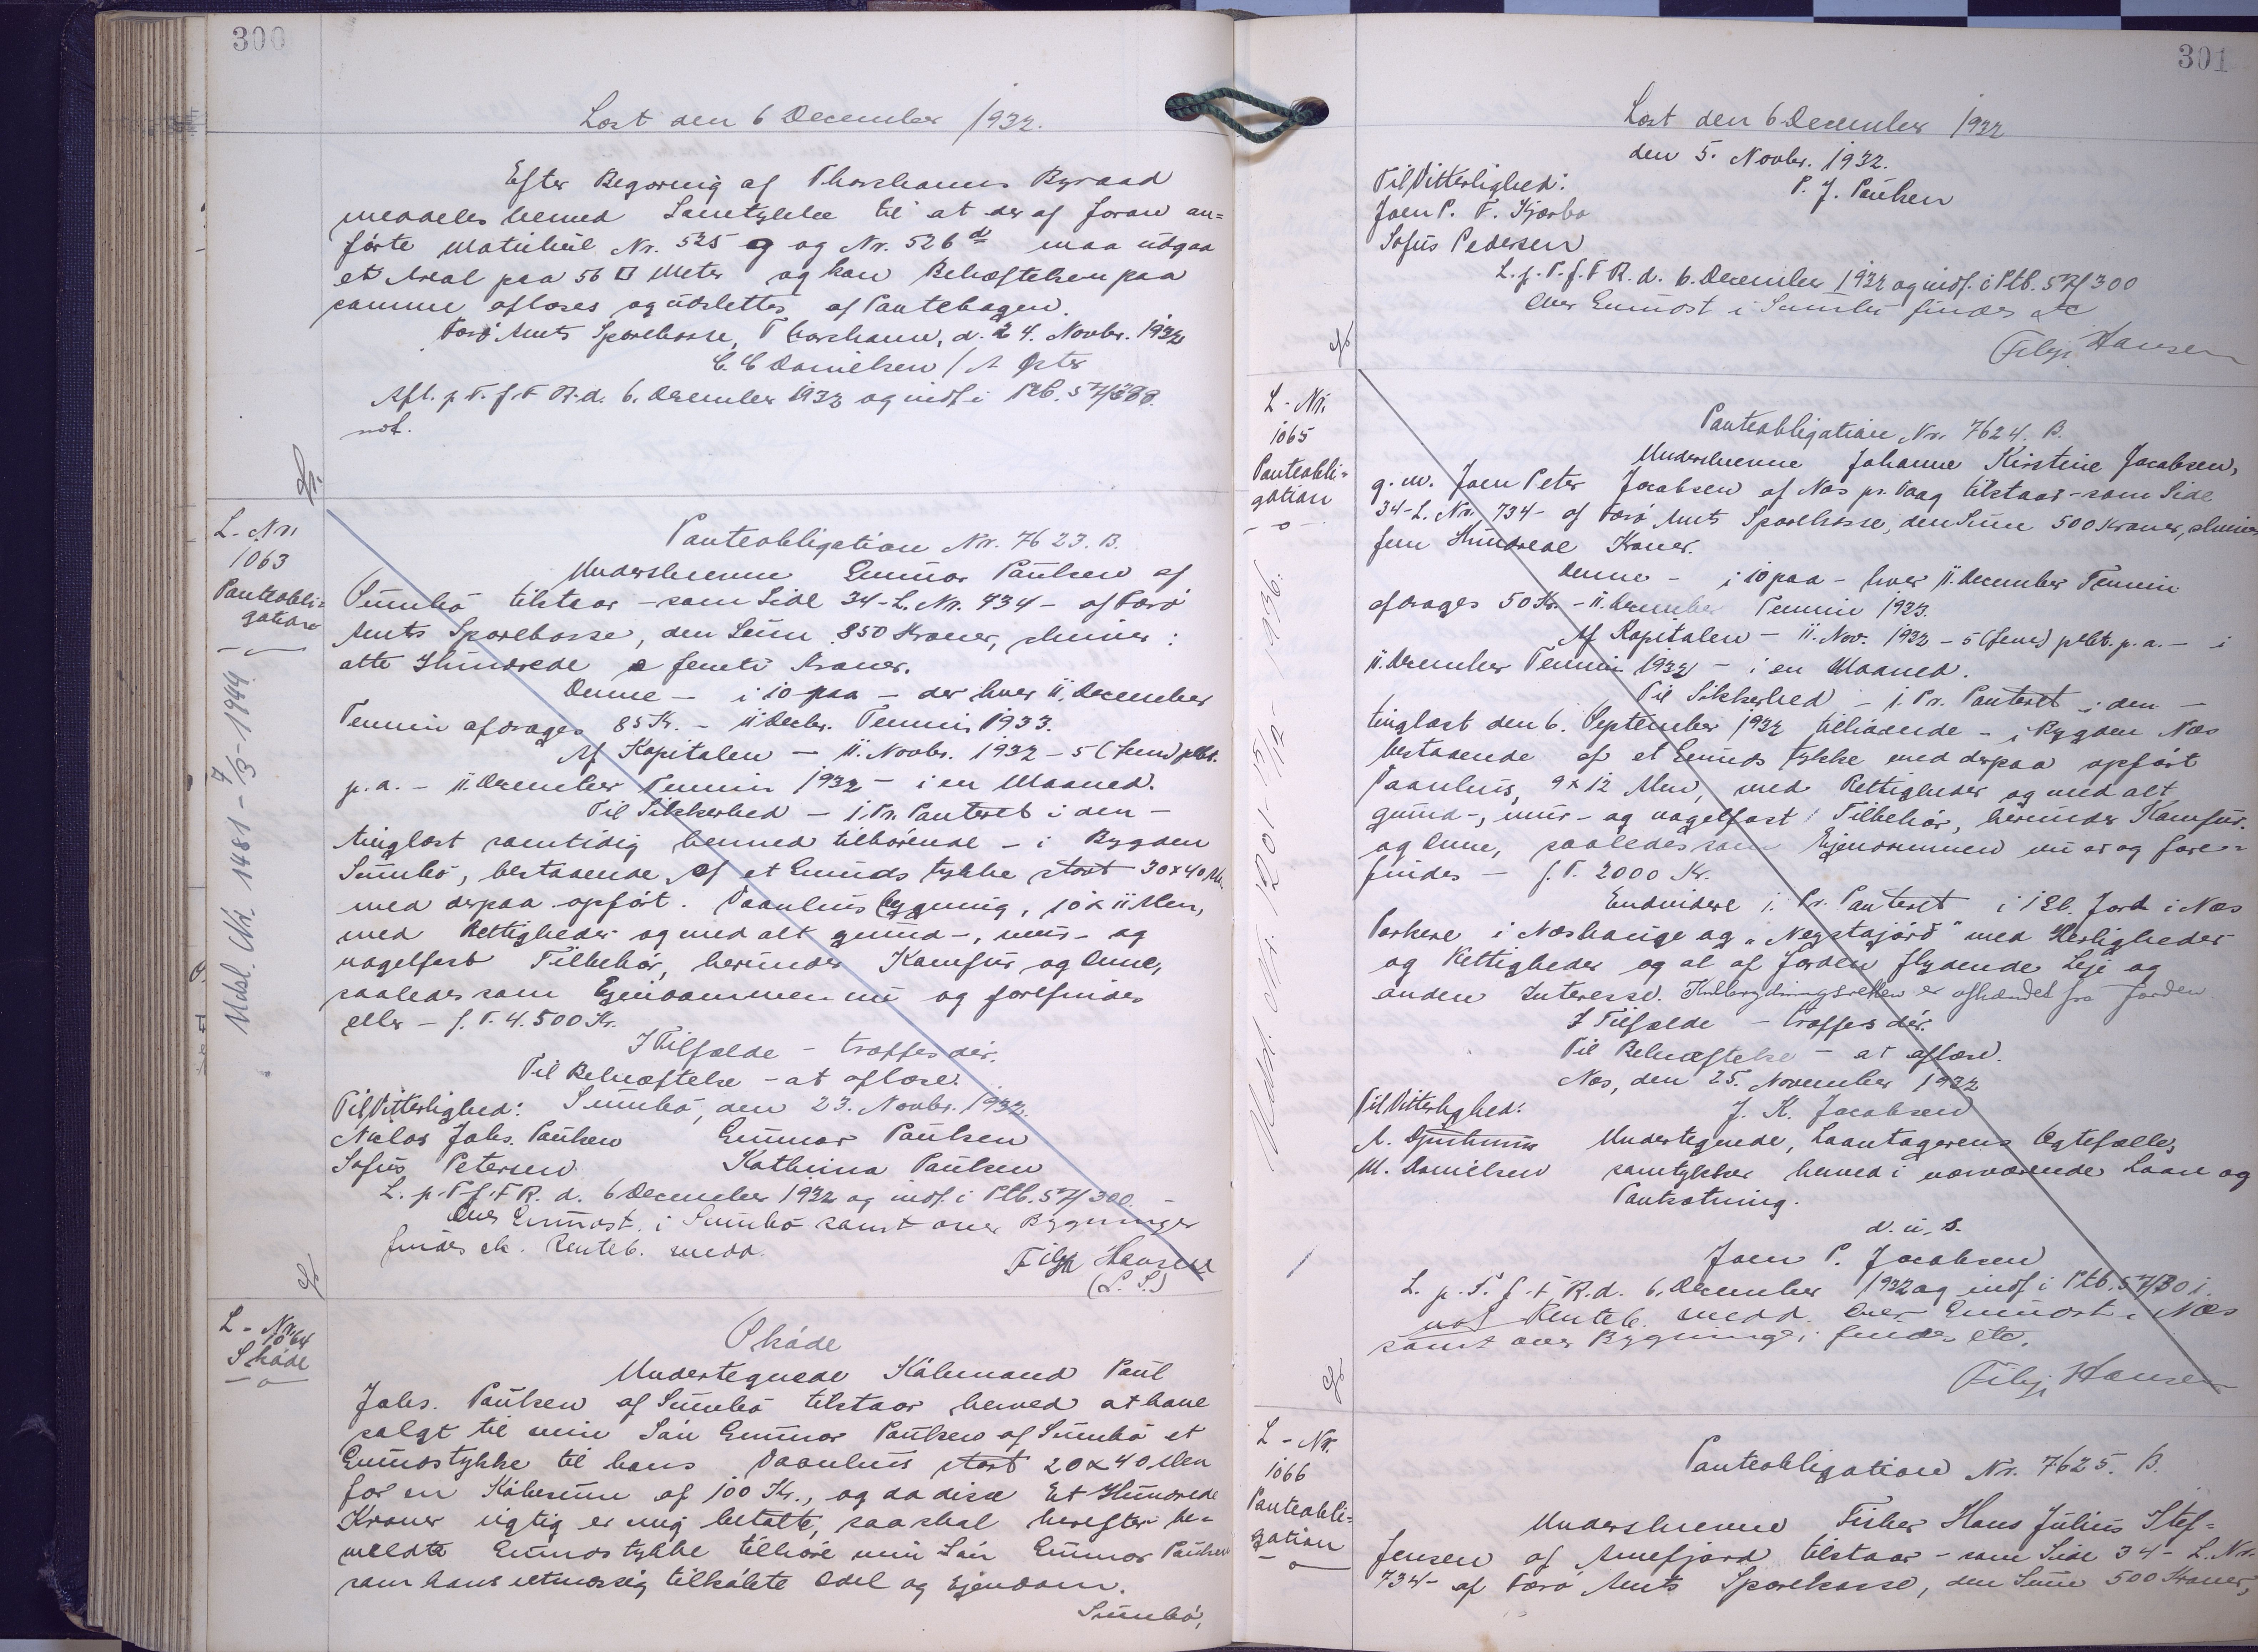 300
Læst den 6 December 1932.
Efter Begæring af Thorshavns Byraad
meddeles herved Samtykke til at der af foran an=
førte Matrikul Nr. 525 g og Nr. 526 d maa udgaa
et Areal paa 56 □ Meter og kan Behæftelsen paa
samme afløses og udslettes af Pantebogen.
Færø Amts Sparekasse, Thorshavn, d. 24. Novbr. 1932
C. C Danielsen /
Afl. p. T. f. F R. d. 6. December 1932 og indf. i Ptb.
not.
L. Nr.
1063
Panteobli=
gation
Udsl. Nr. 1481 - 7/3 - 1944
Panteobligation Nr. 7623. B.
Underskrevne Gunnar Paulsen af
Sumbø tilstaar - som Side 34 - L. Nr. 734 - af Færø
Amts Sparekasse, den Sum 850 Kroner, skriver:
otte Hundrede & femti Kroner.
Denne - i 10 paa - der hver 11. December
Termin afdrages 85 Kr. - 11 Decbr. Termin 1933.
Af Kapitalen - 11. Novbr. 1932 - 5 (fem) pCt.
p. a. - 11. December Termin 1932 - i en Maaned.
Til Sikkerhed - 1. Pr. Panteret i den -
tinglæst samtidig herved tilhørende - i Bygden
Sumbø, bestaaende af et Grundstykke stort 30 x 40 Al.
med derpaa opført. Vaaningsbygning, 10 x 11 Alen,
med Rettigheder og med alt grund-, mur- og
nagelfast Tilbehør, herunder Komfur og Ovne,
saaledes som Ejendommen nu og forefindes
eller - f. T. 4.500 Kr.
I Tilfælde - træffes dér.
Til Bekræftelse - at aflæse.
Til Vitterlighed: Sumbø, den 23. Novbr. 1932.
Niclas Johs. Paulsen Gunnar Paulsen
Sofus Petersen Kathrina Paulsen
L. p. T f. F R. d. 6 December 1932 og indf. i Ptb. 57/300.
Over Grunost. i Sumbø samt over Bygninger
findes etc. Renteb. medd.
Filip Hansen
(L. S.)
L - Nr.
1064
Skøde
Skøde
Undertegnede Købmand Paul
Johs. Paulsen af Sumbø tilstaar herved at have
solgt til min Søn Gunnar Paulsen af Sumbø et
Grundstykke til hans Vaanhus stort 20 x 40 Alen
for en Købesum af 100 Kr., og da disse Et Hundrede
Kroner rigtig er mig betalte, saa skal herefter be=
meldte Grundstykke tilhøre min Søn Gunnar Paulsen
som hans retmæssig tilkøbte Odel og Ejendom.
Sumbø,
301
Læst den 6 December 1932
den 5. Novbr. 1932.
Til Vitterlighed: P. J. Paulsen
Joen P. F. Kjærbo
Sofus Pedersen
L. p. T. f. F R. d. 6. December 1932 og indf. i Ptb. 57/300
Over Grunost i Sumbø findes etc
Filip Hansen
L - Nr.
1065
Panteobli=
gation
Udsl. Nr. 1201 - 15/12 - 1936.
Panteobligation Nr. 7624. B.
Underskrevne Johanne Kirstine Jacobsen,
g. m. Joen Peter Jacobsen af Næs pr. Vaag tilstaar - som Side
34 - L. Nr. 734 - af Færø Amts Sparekasse, den Sum 500 Kroner, skriver
fem Hundrede Kroner.
Denne - i 10 paa - hver 11. December Termin
afdrages 50 Kr. - 11. December Termin 1933.
Af Kapitalen - 11. Nov. 1932 - 5 (fem) pCt. p. a. - i
11. December Termin 1932 - i en Maaned.
Til Sikkerhed - 1. Pr. Panteret i den -
tinglæst den 6. September 1932 tilhørende - i Bygden Næs
bestaaende af et Grundstykke med derpaa opført
Vaanhus, 9 x 12 Alen, med Rettigheder og med alt
grund-, mur- og nagelfast Tilbehør, herunder Komfur.
og Ovne, saaledes som Ejendommen nu er og fore=
findes - f. T. 2000 Kr.
Endvidere 1. Pr. Panteret i Jord i Næs
i Næshauge og "Neystajørð" med Herligheder
og Rettigheder og al af Jorden flydende Leje og
anden Interesse. Kulbrydningsretten er afhændet fra Jorden
I Tilfælde - træffes dér.
Til Bekræftelse - at aflæse.
Næs, den 25. November 1932
Til Vitterlighed: J. K. Jacobsen
Undertegnede, Laantagerens Ægtefælle,
M. Danielsen samtykker herved i nærværende Laan og
Pantsætning.
d. u. s.
Joen P. Jacobsen
L. p. T. f. F R. d. 6. December 1932 og indf. i Ptb. 57/301.
not Renteb. medd. Over Grunost i Næs
samt over Bygninger findes etc.
Filip Hansen
L - Nr.
1066
Panteobli=
gation
Panteobligation Nr. 7625. B.
Underskrevne Fisker Hans Julius Stef=
fensen af Arnefjord tilstaar - som Side 34 - L. Nr.
734 - af Færø Amts Sparekasse, den Sum 500 Kroner,